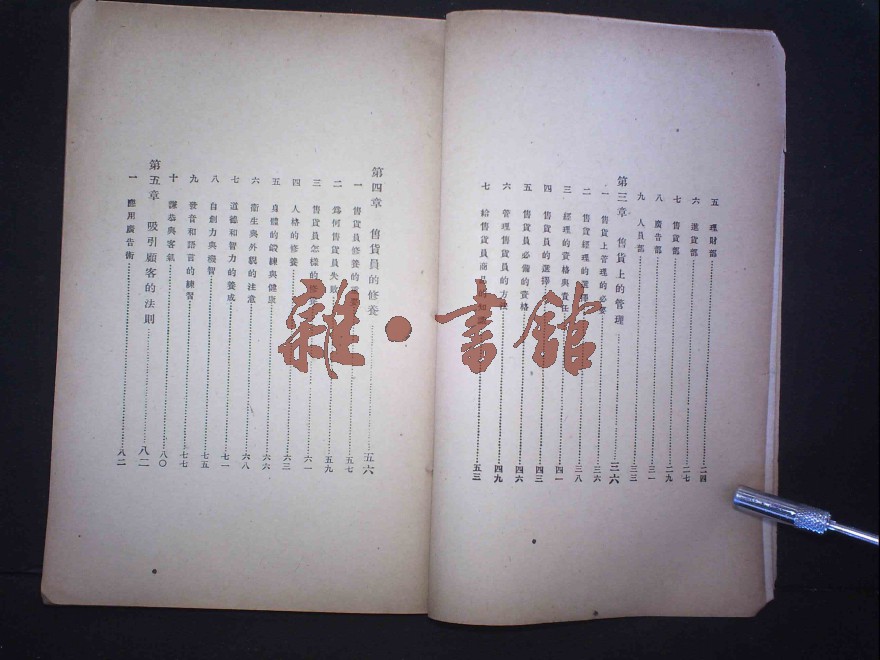 五 理財部……二四
六 進貨部……二七
七 售貨部……二九
八 廣告部……三一
九 人員部……三三
第三章 售貨上的管理……三六
一 售貨上管理的必要……三六
二 售貨經理的選擇……三八
三 經理的資格與責任……四一
四 售貨員的選擇……四三
五 售貨員必備的資格……四六
六 管理售貨員的方法……四九
七 給售貨員商品的知識……五三
第四章 售貨員的修養……五六
一 售貨員修養的重要……五七
二 爲何售貨員失敗……五九
三 售貨員怎樣的修養……六一
四 人格的修養……六三
五 身體的鍛練與健康……六六
六 衞生與外貌的注意……六八
七 道德和智力的養成……七一
八 自創力與機智……七五
九 發音和語言的練習……七七
十 謙恭與客氣……八〇
第五章 吸引顧客的法則……八二
一 應用廣告術……八二
雜·書館